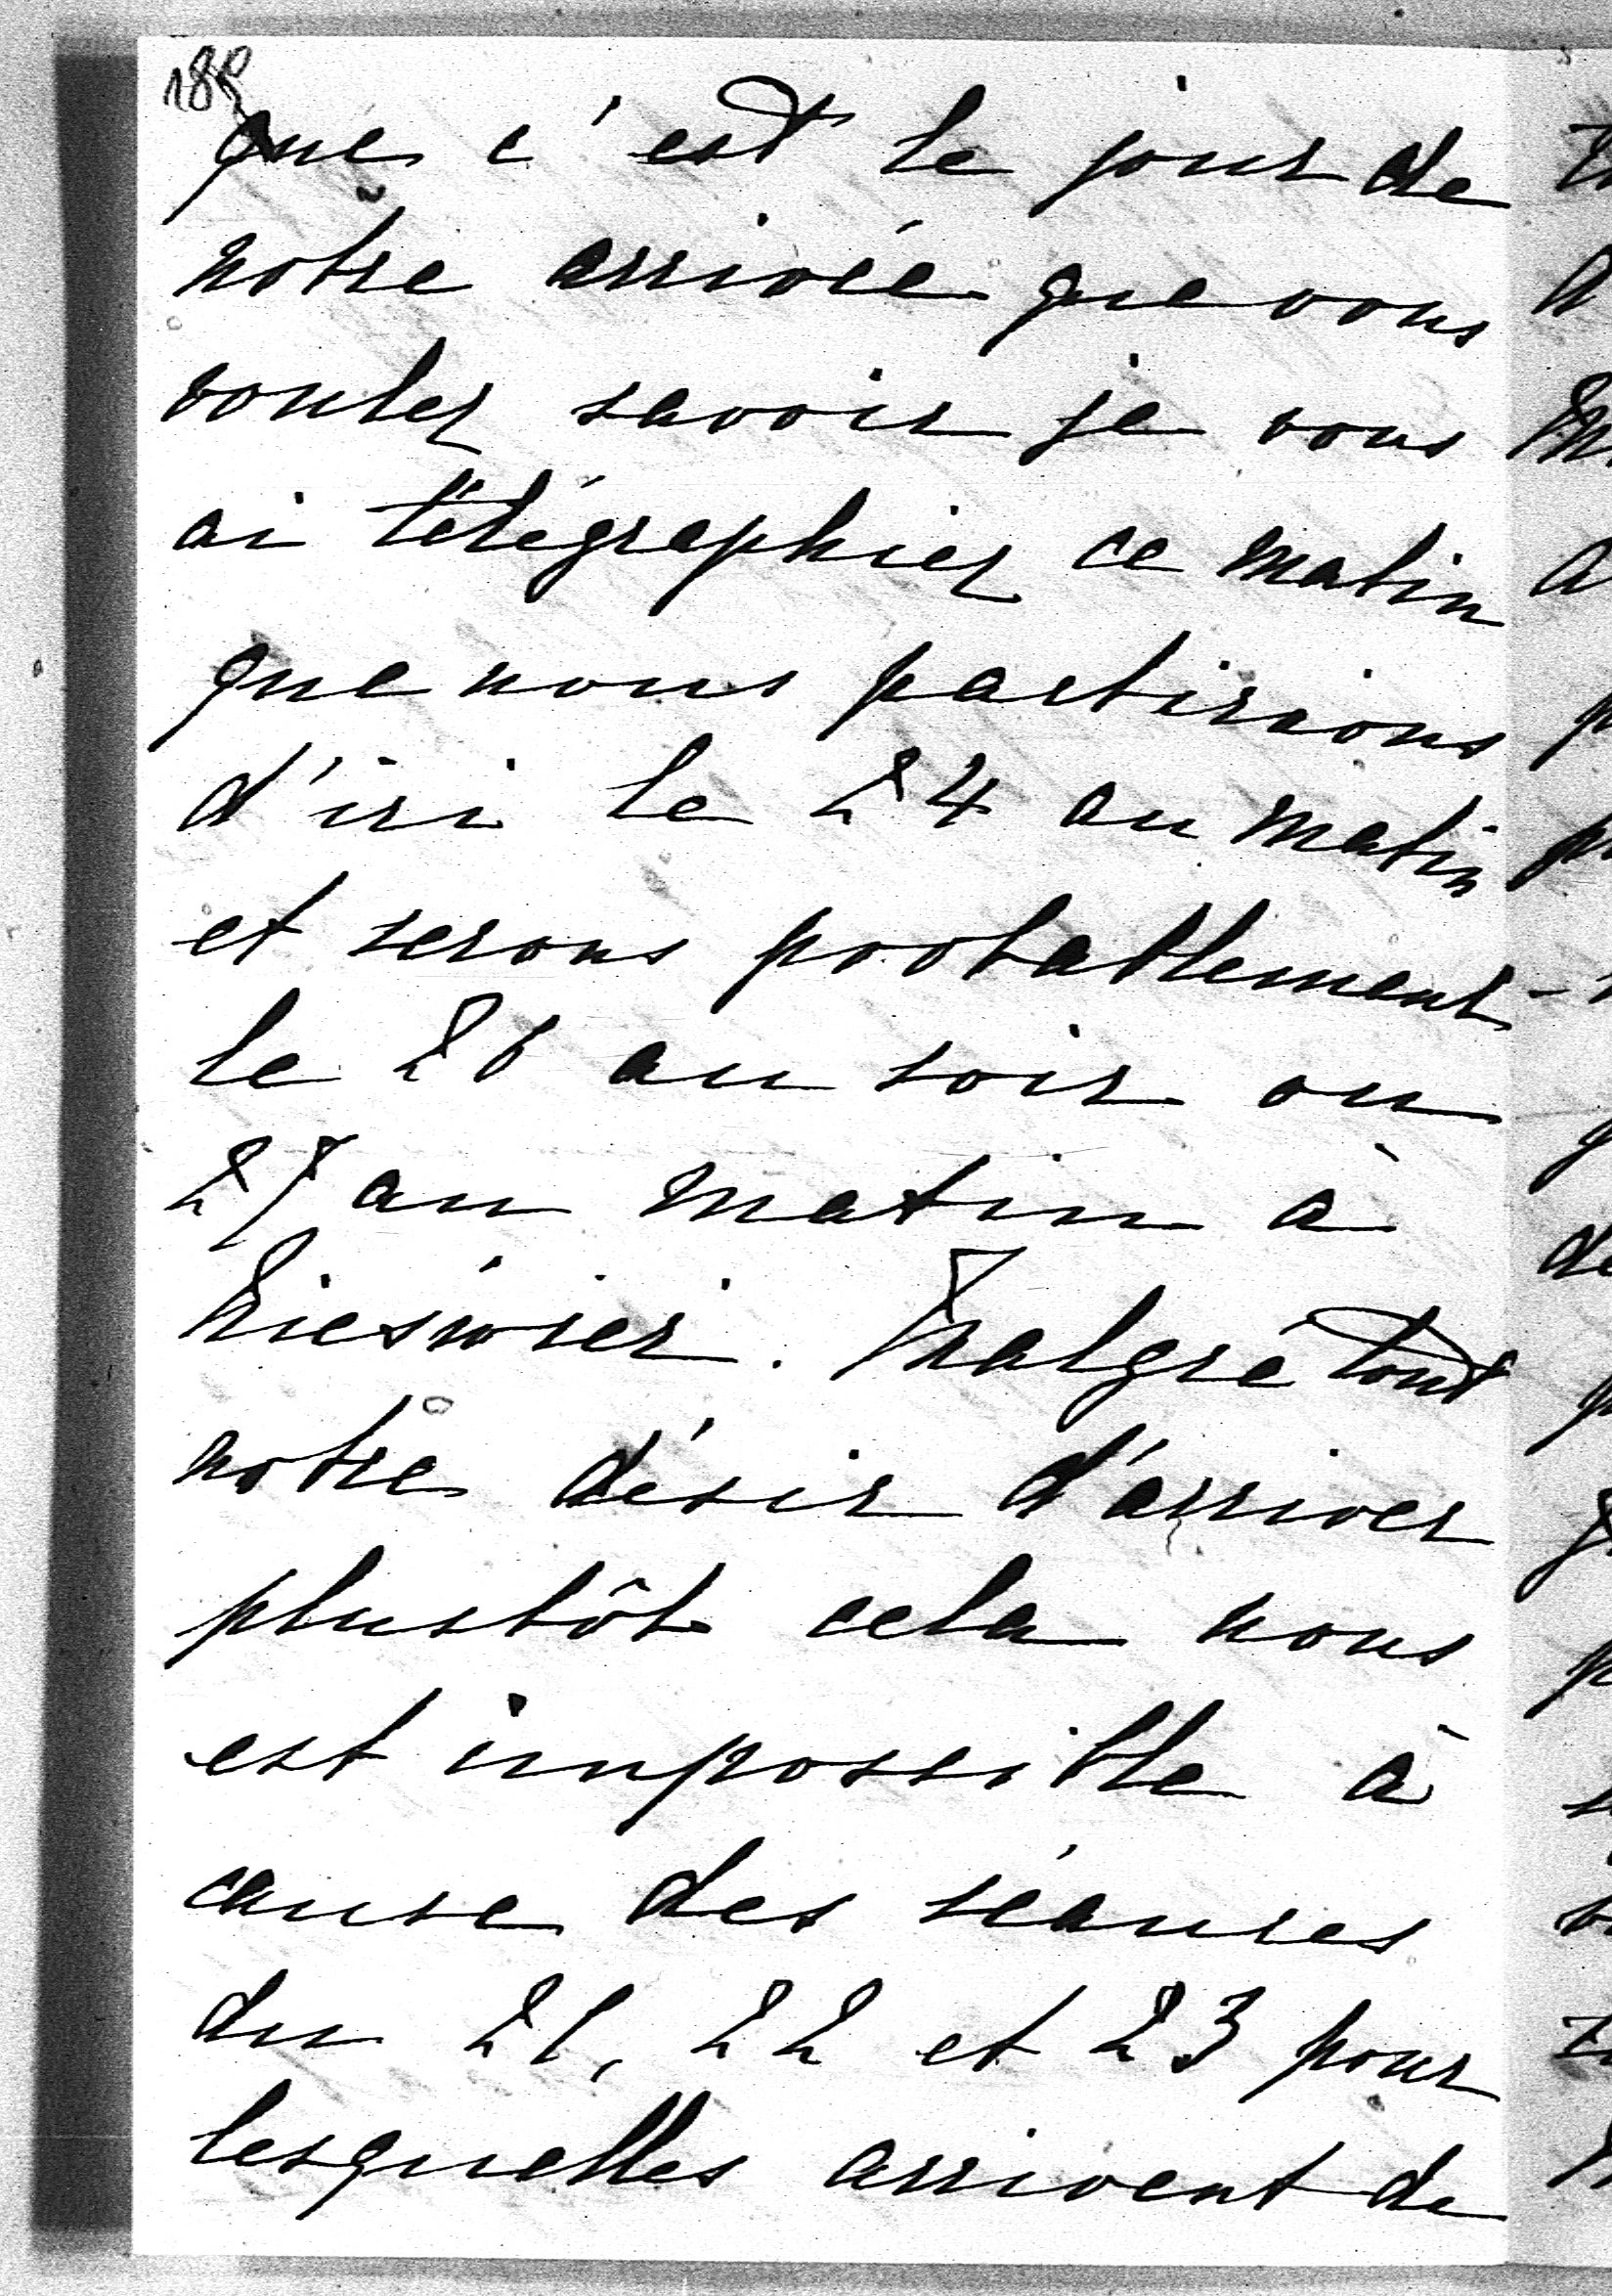 que c'est le jour de
notre arrivée que vous
voulez savoir je vous
ai télégraphier ce matin
que nous partirions
d'ici le 24 au matin
et serons probablement
le 26 au soir ou
27 au matin à
Nieswiez. Malgré tout
notre désir d'arriver
plustôt cela nous
est impossible à
cause des séances
du 21, 22 et 23 pour
lesquelles arrivent de